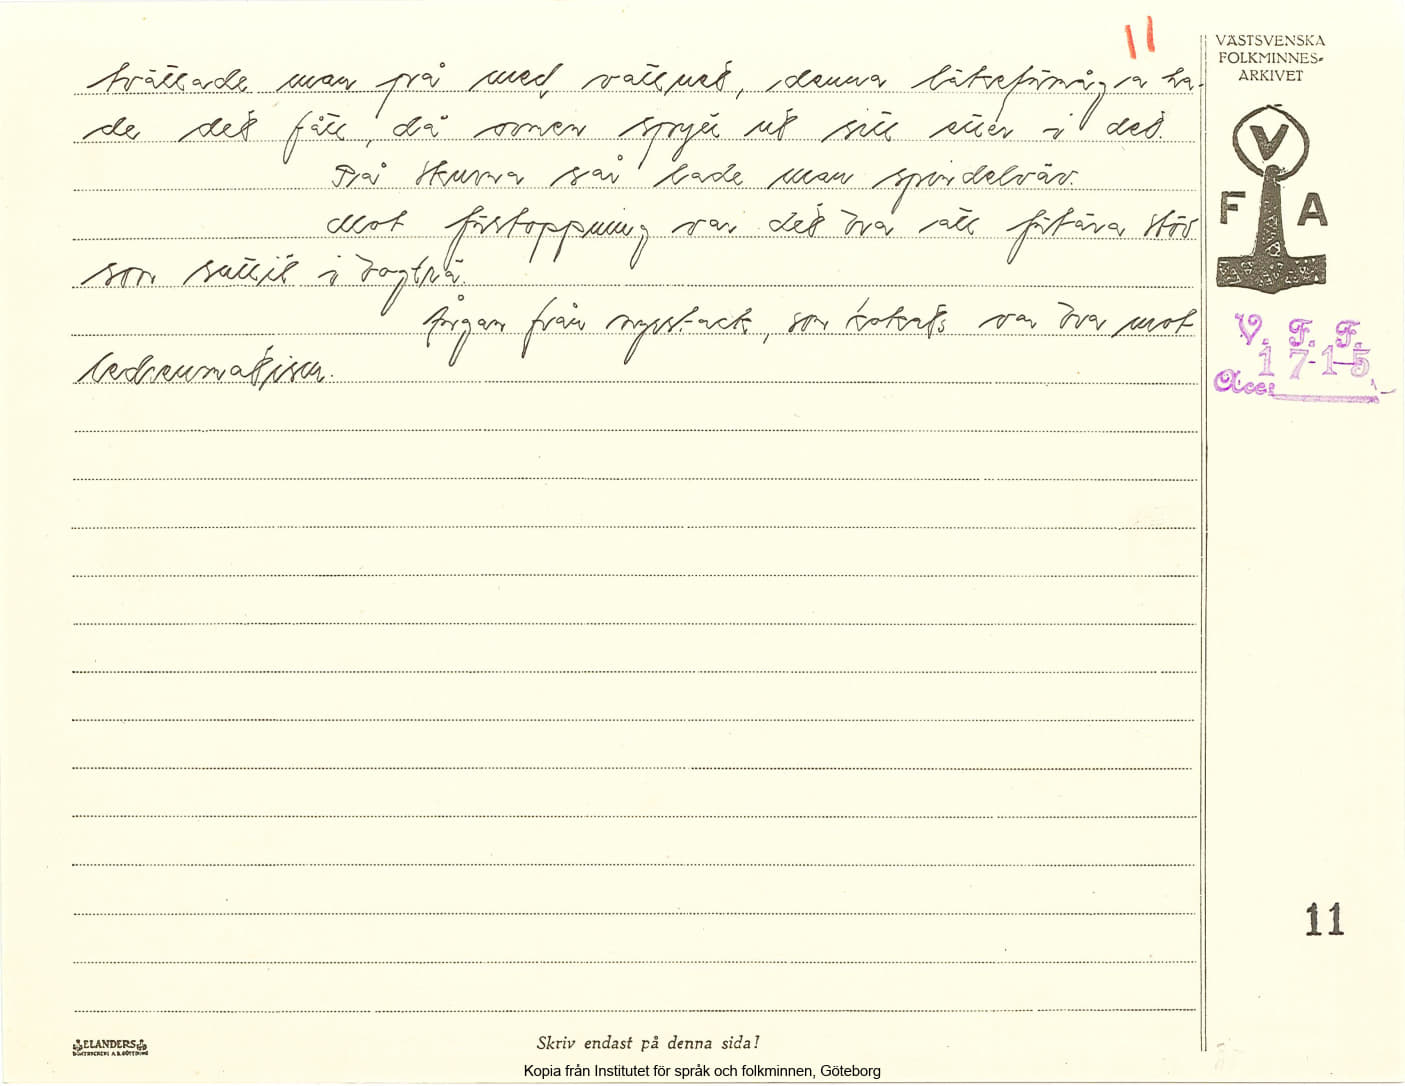 11
VÄSTSVENSKA
FOLKMINNES-
ARKIVET
tvättade man på med vattnet, denna läkeförmåga ha-
de det fått, då ormen spytt ut sitt etter i det.
På skurna sår lade man spindelväv.
Mot förstoppning var det bra att förtära stöv
som suttit i bogträ.
Ångan från myrstack, som kokats var bra mot
ledreumatism.
V
F A
V. F. F.
1715
Acc:
11
ELANDERS
BOKTRYCKERI A.B. GÖTEBORG
Skriv endast på denna sida!
Kopia från Institutet för språk och folkminnen, Göteborg